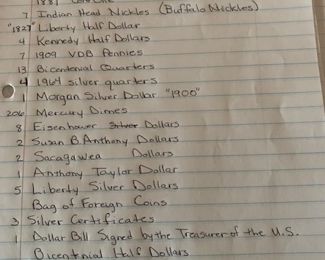 1881
7 Indian Head Nickles (Buffalo Nickles)
"1827" Liberty Half Dollar
4 Kennedy Half Dollars
7 1909 VDB Pennies
13 Bicentenial Quarters
4 1964 silver quarters
1 Morgan Silver Dollar "1900"
206 Mercury Dimes
8 Eisenhower Silver Dollars
2 Susan B. Anthony Dollars
2 Sacagawea Dollars
1 Anthony Taylor Dollar
5 Liberty Silver Dollars
Bag of Foreign Coins
3 Silver Certificates
1 Dollar Bill Signed by the Treasurer of the U.S.
Bicentinial Half Dollars